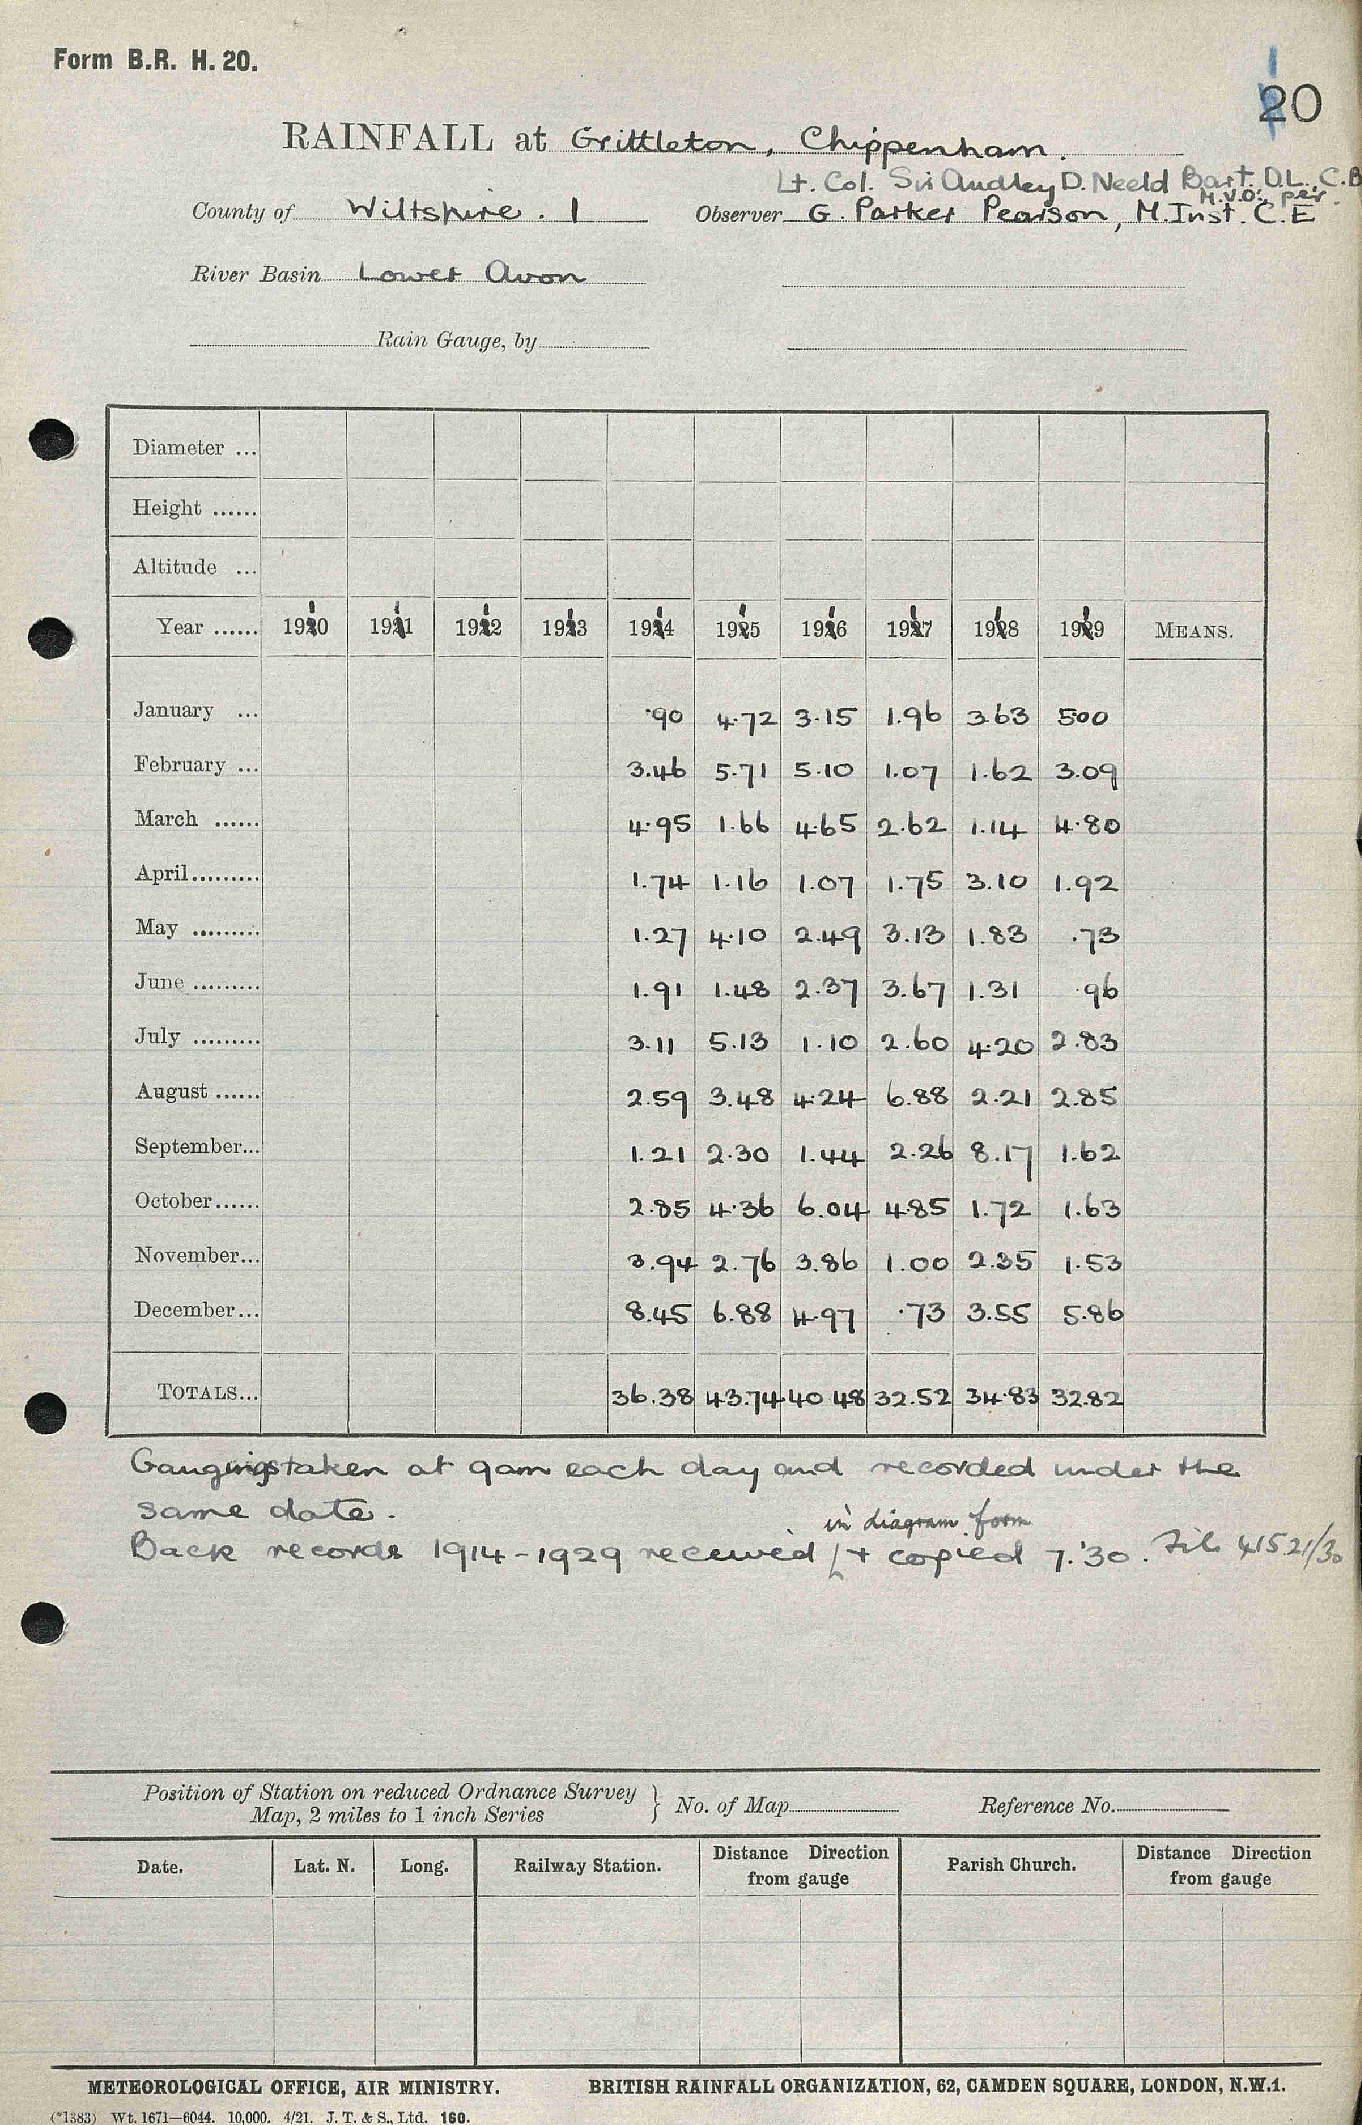 Form B.R. H. 20.
20
RAINFALL at Grittleton, Chippenham.
Lt. Col. Sir Audley D. Neeld Bart. D.L., C.B
M.V.O., per.
County of Wiltshire. 1 Observer G. Parker Pearson, M.Inst.C.E
River Basin Lower Avon
Rain Gauge, by
Diameter ...
Height ......
Altitude ...
Year ...... 1910 1911 1912 1913 1914 1915 1916 1917 1918 1919 MEANS.
January ... ·90 4·72 3·15 1.96 3.63 5·00
February ... 3.46 5.71 5.10 1.07 1.62 3.09
March ...... 4.95 1.66 4.65 2.62 1.14 4.80
April......... 1.74 1.16 1.07 1.75 3.10 1.92
May ......... 1.27 4.10 2.49 3.13 1.83 .73
June ......... 1.91 1.48 2.37 3.67 1.31 .96
July ......... 3.11 5.13 1.10 2.60 4.20 2.83
August ...... 2.59 3.48 4.24 6.88 2.21 2.85
September... 1.21 2.30 1.44 2.26 8.17 1.62
October...... 2.85 4.36 6.04 4.85 1.72 1.63
November... 3.94 2.76 3.86 1.00 2.35 1.53
December... 8.45 6.88 4.97 .73 3.55 5.86
TOTALS... 36.38 43.74 40 48 32.52 34.83 32.82
Gaugings taken at 9am each day and recorded under the
same date.
in diagram form
Back records 1914-1929 received + copied 7.'30. File 41521/30
Position of Station on reduced Ordnance Survey
Map, 2 miles to 1 inch Series } No. of Map Reference No.
Date. Lat. N. Long. Railway Station. Distance Direction from gauge Parish Church. Distance Direction from gauge
METEOROLOGICAL OFFICE, AIR MINISTRY. BRITISH RAINFALL ORGANIZATION, 62, CAMDEN SQUARE, LONDON, N.W.1.
(*1383) Wt. 1671—6044. 10,000. 4/21. J. T. & S., Ltd. 160.